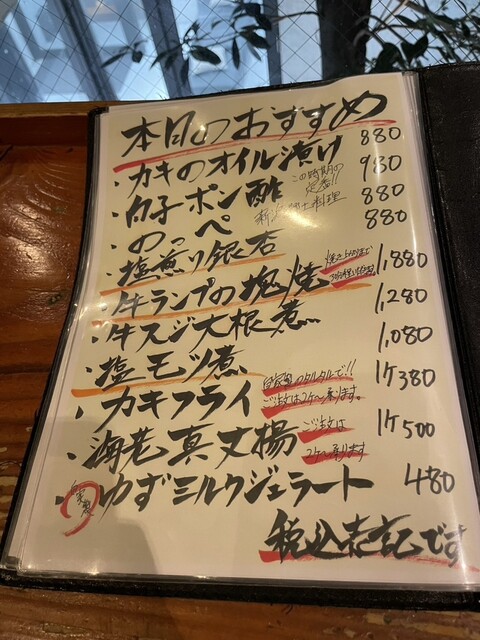 本日のおすすめ
・カキのオイル漬け 880
・白子ポン酢 この時期の定番!! 980
・のっぺ 新潟郷土料理 880
・塩煎り銀杏 880
・牛ランプの塩焼 1,880
・牛スジ大根煮 1,280
・塩モツ煮 1,080
・カキフライ 自家製のタルタルで!! 1ケ380
ご注文は2ケ〜承ります。
・海老真丈揚 ご注文は 1ケ500
2ケ〜承ります
・ゆずミルクジェラート 480
税込表記です